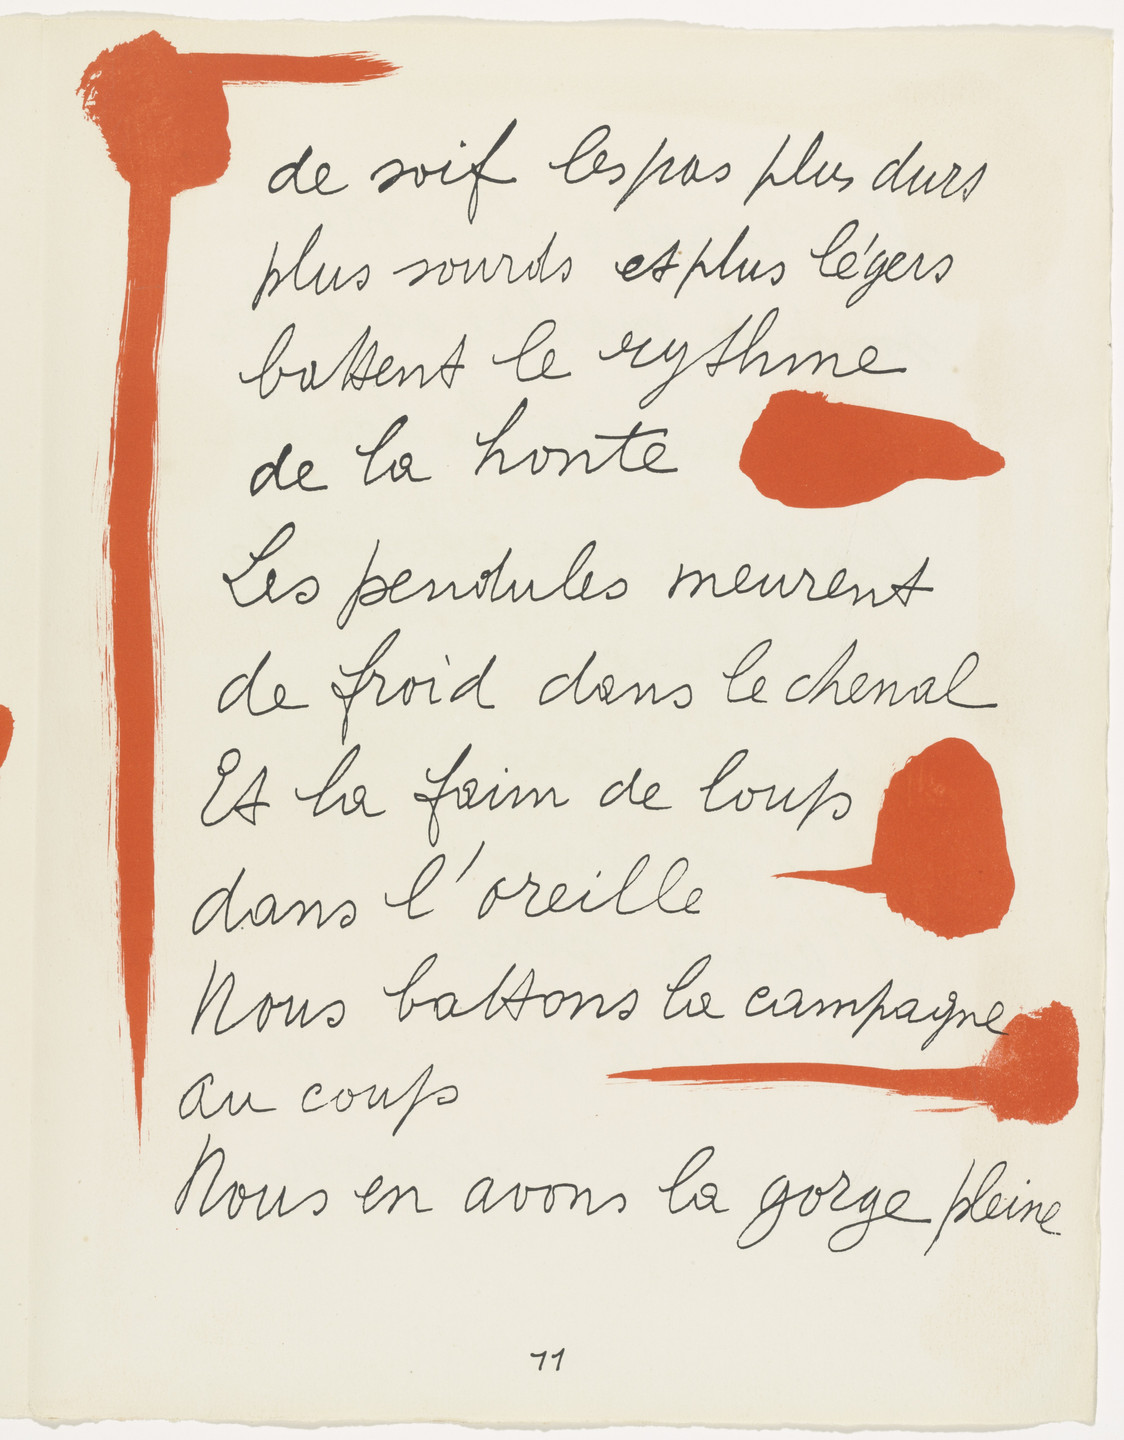 de soif les pas plus durs
plus sourds et plus légers
battent le rythme
de la honte
Les pendules meurent
de froid dans le chenal
Et la faim de loups
dans l'oreille
Nous battons la campagne
au coups
Nous en avons la gorge pleine
11